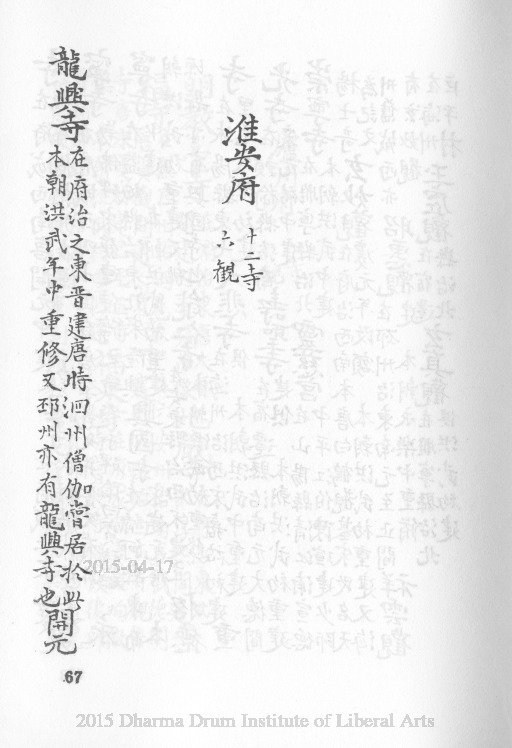 淮安府
十二寺
六觀
龍興寺
在府治之東晉建唐時泗州僧伽嘗居於此
本朝洪武年中重修又邳州亦有龍興寺也
開元
67
2015-04-17
2015 Dharma Drum Institute of Liberal Arts